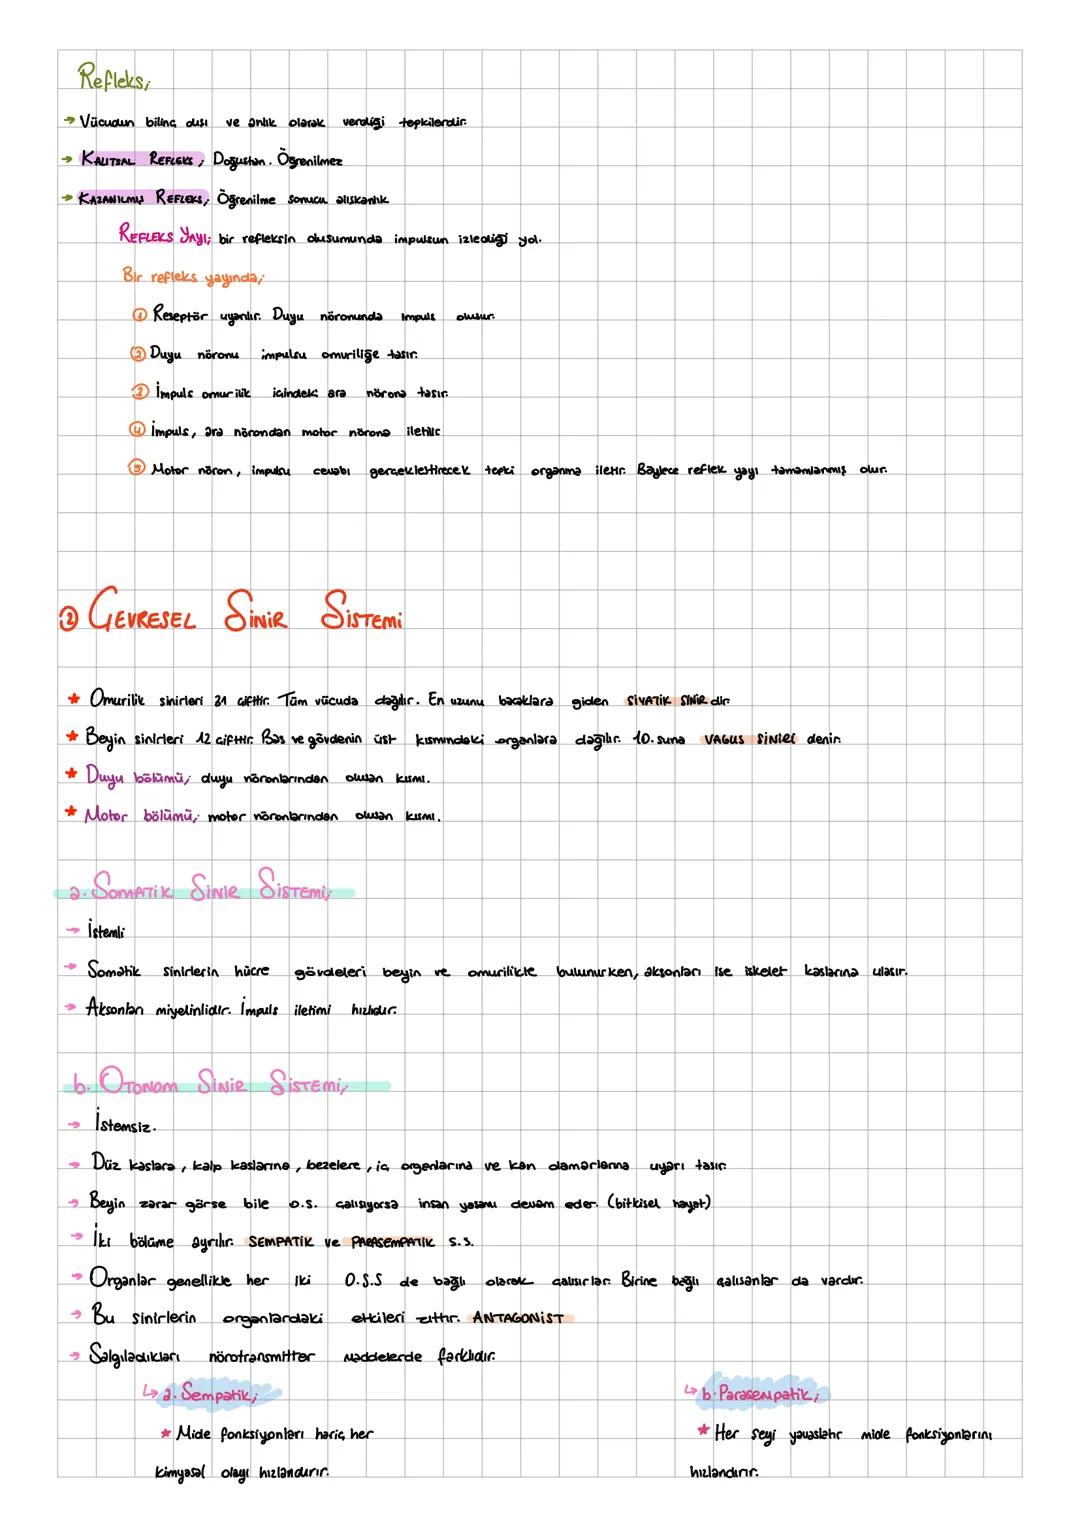 Refleks;
→ Vücudun bilinç dışı ve anlık olarak verdiği tepkilerdir.
→ KALITSAL REFLEKS; Doğuştan. Öğrenilmez
→ KAZANILMIŞ REFLEKS; Öğrenilme sonucu alışkanlık
REFLEKS YAYI; bir refleksin oluşumunda impulsun izlediği yol.
Bir refleks yayında;
① Reseptör uyarılır. Duyu nöronunda impuls oluşur.
② Duyu nöronu impulsu omuriliğe taşır.
③ İmpuls omurilik içindeki ara nörona taşır.
④ İmpuls, ara nörondan motor nörona iletilir
⑤ Motor nöron, impulsu cevabı gerçekleştirecek tepki organına iletir. Böylece reflek yayı tamamlanmış olur.
② ÇEVRESEL SİNİR SİSTEMİ
★ Omurilik sinirleri 31 çifttir. Tüm vücuda dağılır. En uzunu bacaklara giden SİYATİK SİNİR dir.
★ Beyin sinirleri 12 çifttir. Baş ve gövdenin üst kısmındaki organlara dağılır. 10.suna VAGUS SİNİRİ denir.
★ Duyu bölümü; duyu nöronlarından oluşan kısmı.
★ Motor bölümü; motor nöronlarından oluşan kısmı.
a. SOMATİK SİNİR SİSTEMİ;
→ İstemli
→ Somatik sinirlerin hücre gövdeleri beyin ve omurilikte bulunurken, aksonları ise iskelet kaslarına ulaşır.
→ Aksonları miyelinlidir. İmpuls iletimi hızlıdır.
b. OTONOM SİNİR SİSTEMİ;
→ İstemsiz.
→ Düz kaslara, kalp kaslarına, bezelere, iç organlarına ve kan damarlarına uyarı taşır.
→ Beyin zarar görse bile o.s. çalışıyorsa insan yaşamı devam eder. (bitkisel hayat)
→ İki bölüme ayrılır. SEMPATİK ve PARASEMPATİK S.S.
→ Organlar genellikle her iki O.S.S de bağlı olarak çalışırlar. Birine bağlı çalışanlar da vardır.
→ Bu sinirlerin organlardaki etkileri zıttır. ANTAGONİST
→ Salgıladıkları nörotransmitter maddelerde farklıdır.
↳ a. Sempatik;
★ Mide fonksiyonları hariç her
kimyasal olayı hızlandırır.
↳ b. Parasempatik;
★ Her şeyi yavaşlatır mide fonksiyonlarını
hızlandırır.